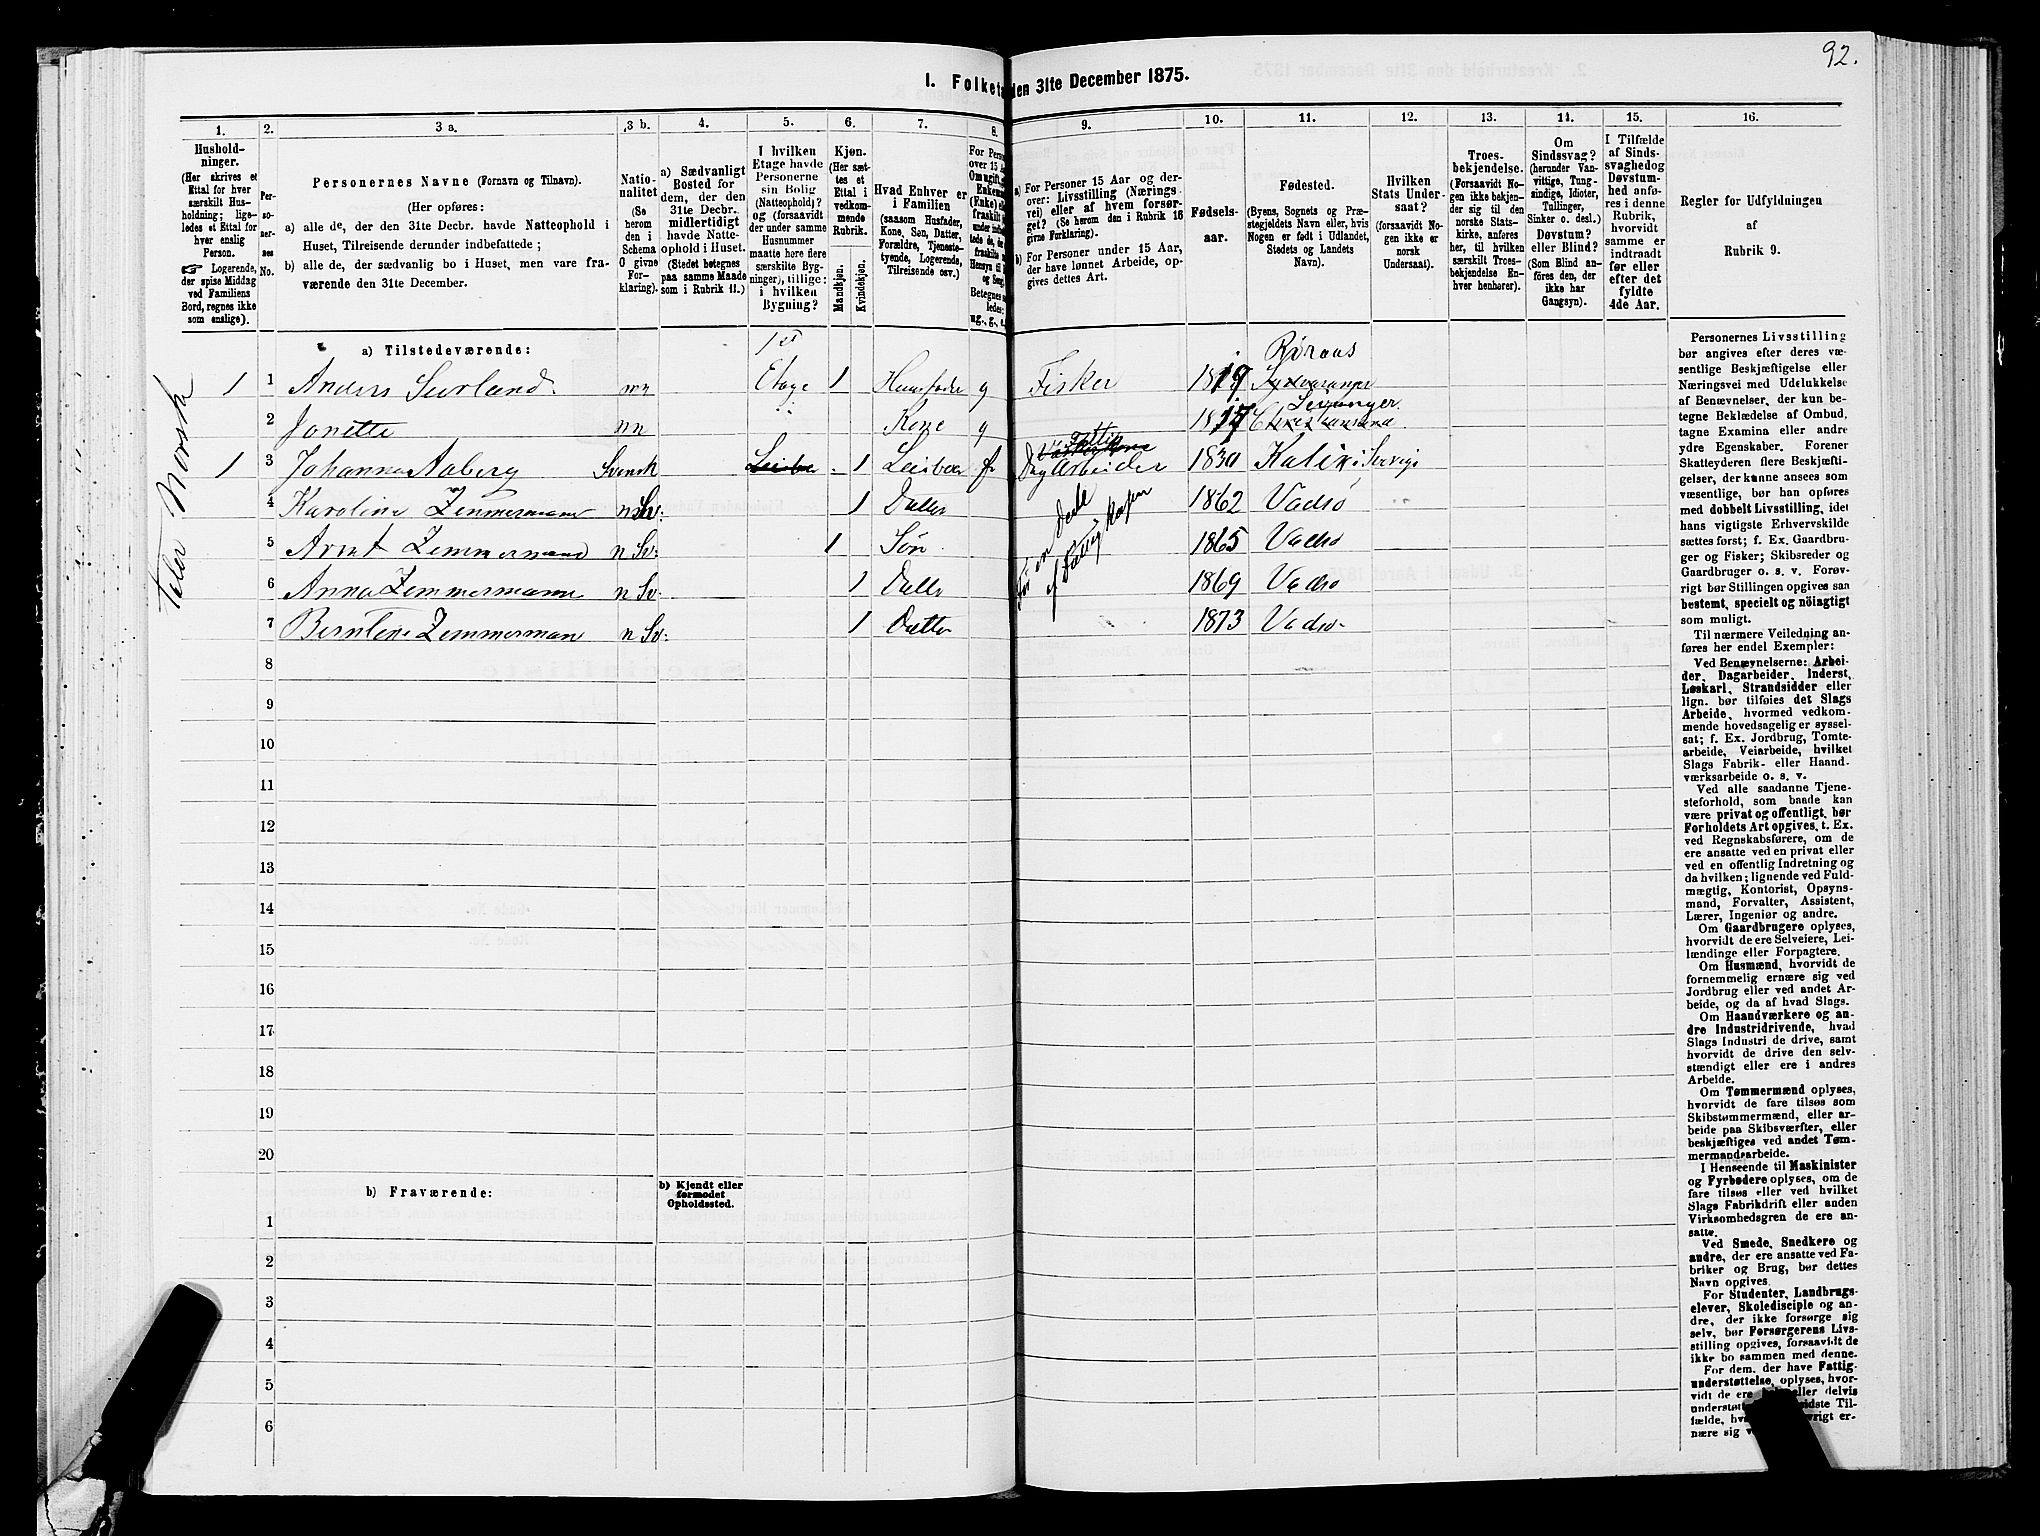 92.
I. Folketæ
den 31te December 1875.
1.
2.
3 a.
3 b.
4.
5.
6.
7.
8.
9.
10.
11.
12.
13.
14.
15.
16.
Hushold-
ninger.
(Her skrives et
Ettal for hver
særskilt Hus-
holdning; lige-
ledes et Ettal for
hver enslig
Person.
☞ Logerende,
der spise Middag
ved Familiens
Bord, regnes ikke
som enslige).
Per-
so-
ner-
nes
No.
Personernes Navne (Fornavn og Tilnavn).
(Her opføres:
a) alle de, der den 31te Decbr. havde Natteophold i
Huset, Tilreisende derunder indbefattede;
b) alle de, der sædvanlig bo i Huset, men vare fra-
værende den 31te December.
Natio-
nalitet
(Se
herom
den i
Schema
O givne
For-
klaring).
a) Sædvanligt
Bosted for
dem, der den
31te Decbr.
midlertidigt
havde Natte-
ophold i Huset.
(Stedet betegnes
paa samme Maade
som i Rubrik 11.)
I hvilken
Etage havde
Personerne
sin Bolig
(Natteophold)?
og (forsaavidt
der under samme
Husnummer
maatte høre flere
særskilte Byg-
ninger), tillige:
i hvilken
Bygning?
Kjøn.
(Her sæt-
tes et
Ettal i
vedkom-
mende
Rubrik.
Mandkjøn.
Kvindekjøn.
Hvad Enhver er
i Familien
(saasom Husfader,
Kone, Søn, Datter,
Forældre, Tjeneste-
tyende, Logerende,
Tilreisende osv.)
For Perso
over 15 Aa
Om ugift, g
Enkema
(Enke) e
fraskilt
a) For Personer 15 Aar og der-
over: Livsstilling (Nærings
vei) eller af hvem forsør-
get? (Se herom den i Rubrik 16
givne Forklaring).
b) For Personer under 15 Aar,
der have lønnet Arbeide, op-
gives dettes Art.
Fødsels-
aar.
Fødested.
(Byens, Sognets og Præ-
stegjeldets Navn eller, hvis
Nogen er født i Udlandet,
Stedets og Landets
Navn).
Hvilken
Stats Under-
saat?
(forsaavidt No-
gen ikke er
norsk
Undersaat).
Troes-
bekjendelse.
(Forsaavidt No-
gen ikke bekjen-
der sig til den
norske Stats-
kirke, anføres
her, til hvilken
særskilt Troes-
bekjendelse En-
hver henhører).
Om
Sindssvag?
(herunder Van-
vittige, Tung-
sindige, Idioter,
Tullinger,
Sinker o. desl.)
Døvstum?
eller Blind?
(Som Blind an-
føres den, der
ikke har
Gangsyn).
I Tilfælde
af Sinds-
svaghed og
Døvstum-
hed anfø-
res i denne
Rubrik,
hvorvidt
samme er
indtraadt
før eller
efter det
fyldte
4de Aar.
Regler for Udfyldningen
af
Rubrik 9.
a) Tilstedeværende:
1 Etage
Røraas
1 1 nn 1 g Fisker 1819 Sydvaranger
2 Jonette nn Kone g 1817 Levanger
1 3 Johanna Aaberg Svensk 1 f Fattig Dag Arbeider 1830 Kalix i Sverrig
4 Karoline Zimmermann n Sv. 1 Datter 1862 Vadsø
5 Arnt Zemmermand n Sv. 1 Søn 1865 Vadsø
6 Anna Zemmermann n Sv. 1 Datter 1869 Vadsø
7 Berntine Zemmerman n Sv. 1 Datter 1873 Vadsø
af Fattigkassen
Taler Norsk
8
9
10
11
12
13
14
15
16
17
18
19
20
b) Fraværende:
b) Kjendt eller
formodet
Opholdssted.
1
2
3
4
5
6
Personernes Livsstilling
bør angives efter deres væ-
sentlige Beskjæftigelse eller
Næringsvei med Udelukkelse
af Benævnelser, der kun be-
tegne Beklædelse af Ombud,
tagne Examina eller andre
ydre Egenskaber. Forener
Skatteyderen flere Beskjæfti-
gelser, der kunne ansees som
væsentlige, bør han opføres
med dobbelt Livsstilling, idet
hans vigtigste Erhvervskilde
sættes først; f. Ex. Gaardbru-
ger og Fisker; Skibsreder og
Gaardbruger o. s. v. Forøv-
rigt bør Stillingen opgives saa
bestemt, specielt og nöiagtigt
som muligt.
Til nærmere Veiledning an-
føres her endel Exempler:
Ved Benævnelserne: Arbei-
der, Dagarbeider, Inderst,
Løskarl, Strandsidder eller
lign. bør tilføies det Slags
Arbeide, hvormed vedkom-
mende hovedsagelig er syssel-
sat; f. Ex. Jordbrug, Tomte-
arbeide, Veiarbeide, hvilket
Slags Fabrik- eller Haand-
værksarbeide o. s. v.
Ved alle saadanne Tjene-
steforhold, som baade kan
være privat og offentligt, bør
Forholdets Art opgives, t. Ex.
ved Regnskabsførere, om de
ere ansatte ved en privat eller
ved en offentlig Indretning og
da hvilken; lignende ved Fuld-
mægtig, Kontorist, Opsyns-
mand, Forvalter, Assistent,
Lærer, Ingeniør og andre.
Om Gaardbrugere oplyses,
hvorvidt de ere Selveiere, Lei-
lændinge eller Forpagtere.
Om Husmænd, hvorvidt de
fornemmelig ernære sig ved
Jordbrug eller ved andet Ar-
beide, og da af hvad Slags.
Om Haandværkere og an-
dre Industridrivende, hvad
Slags Industri de drive, samt
hvorvidt de drive den selv-
stændigt eller ere i andres
Arbeide.
Om Tømmermænd oplyses,
hvorvidt de fare tilsøs som
Skibstømmermænd, eller ar-
beide paa Skibsværfter, eller
beskjæftiges ved andet Tøm-
mermandsarbeide.
I Henseende til Maskinister
og Fyrbødere oplyses, om de
fare tilsøs eller ved hvilket
Slags Fabrikdrift eller anden
Virksomhedsgren de ere an-
satte.
Ved Smede, Snedkere og
andre, der ere ansatte ved Fa-
briker og Brug, bør dettes
Navn opgives.
For Studenter, Landbrugs-
elever, Skoledisciple og an-
dre, der ikke forsørge sig
selv, bør Forsørgerens Livs-
stilling opgives, forsaavidt de
ikke bo sammen med denne.
For dem, der have Fattig-
understøttelse, oplyses, hvor-
vidt de ere eller delvis